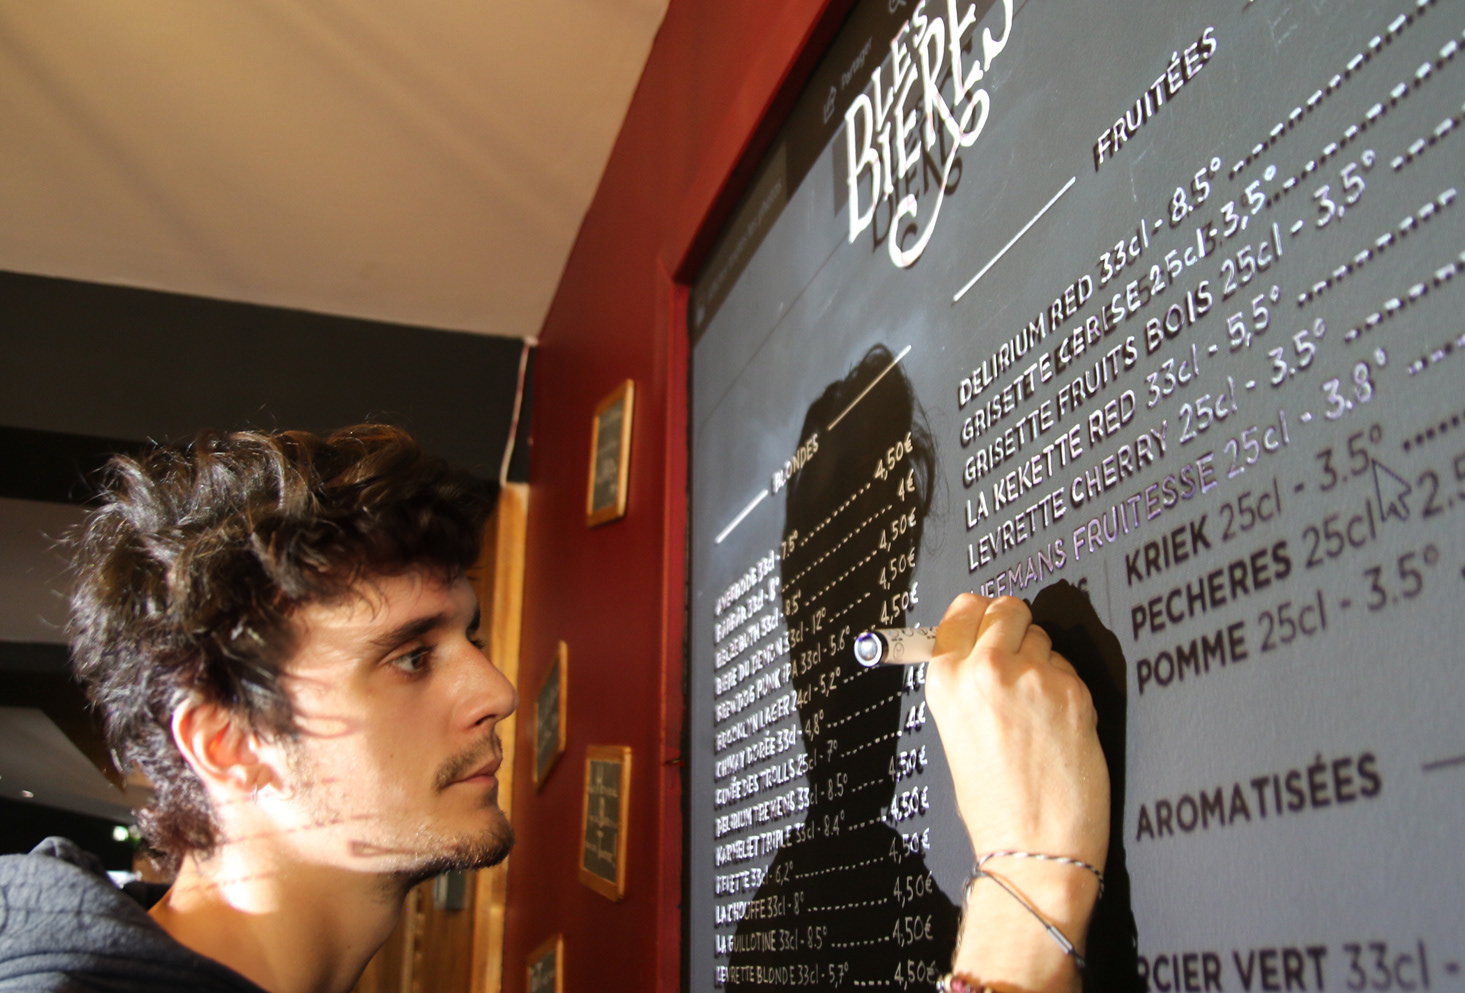 Partager
LES
BIÈRES
BLONDES
7.5° 4,50€
33cl - 8° 4€
33cl - 8.5° 4,50€
33cl - 12° 4,50€
33cl - 5.6° 4,50€
BROOKLYN LAGER 24cl - 5,2° 4€
CHIMAY DORÉE 33cl - 4,8° 4€
CUVÉE DES TROLLS 25cl - 7° 4€
DELIRIUM TREMENS 33cl - 8.5° 4,50€
KARMELIET TRIPLE 33cl - 8.4° 4,50€
33cl - 6,2° 4,50€
LA CHOUFFE 33cl - 8° 4,50€
LA GUILLOTINE 33cl - 8.5° 4,50€
LEVRETTE BLONDE 33cl - 5,7° 4,50€
FRUITÉES
DELIRIUM RED 33cl - 8.5°
GRISETTE CERISE 25cl - 3,5°
GRISETTE FRUITS BOIS 25cl - 3,5°
LA KEKETTE RED 33cl - 5,5°
LEVRETTE CHERRY 25cl - 3.5°
LIEFMANS FRUITESSE 25cl - 3.8°
KRIEK 25cl - 3.5°
PECHERES 25cl 2.5
POMME 25cl - 3.5°
AROMATISÉES
RCIER VERT 33cl -